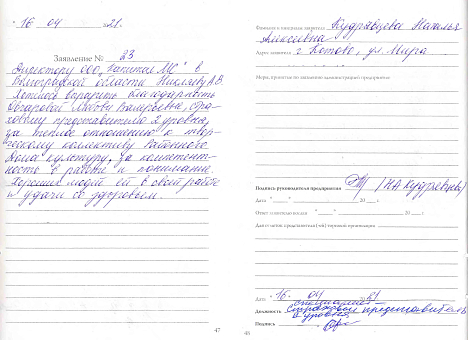 " 16 " 04 21г.
Заявление № 23
Директору ООО "Капитал МС" в
Волгоградской области Николаеву А.В.
Хотелось выразить благодарность
Любови Валерьевне, стра-
ховому представителю 2 уровня,
за теплое отношение к твор-
ческому коллективу Районного
Дома культуры, за компетент-
ность в работе и понимание.
Хороших людей ей в своей работе
и удачи со здоровьем.
47
Фамилия и инициалы заявителя Кудрявцева Наталья
Алексеевна
Адрес заявителя г. Котово, ул. Мира
Меры, принятые по заявлению администрацией предприятия
Подпись руководителя предприятия (НА Кудрявцева)
Дата " " 20 г.
Ответ заявителю дан " " 20 г.
Для отметок представителя (ей) торговой организации
Дата 16 04 21
специалист
Должность страховой представитель
2 уровня
Подпись
48